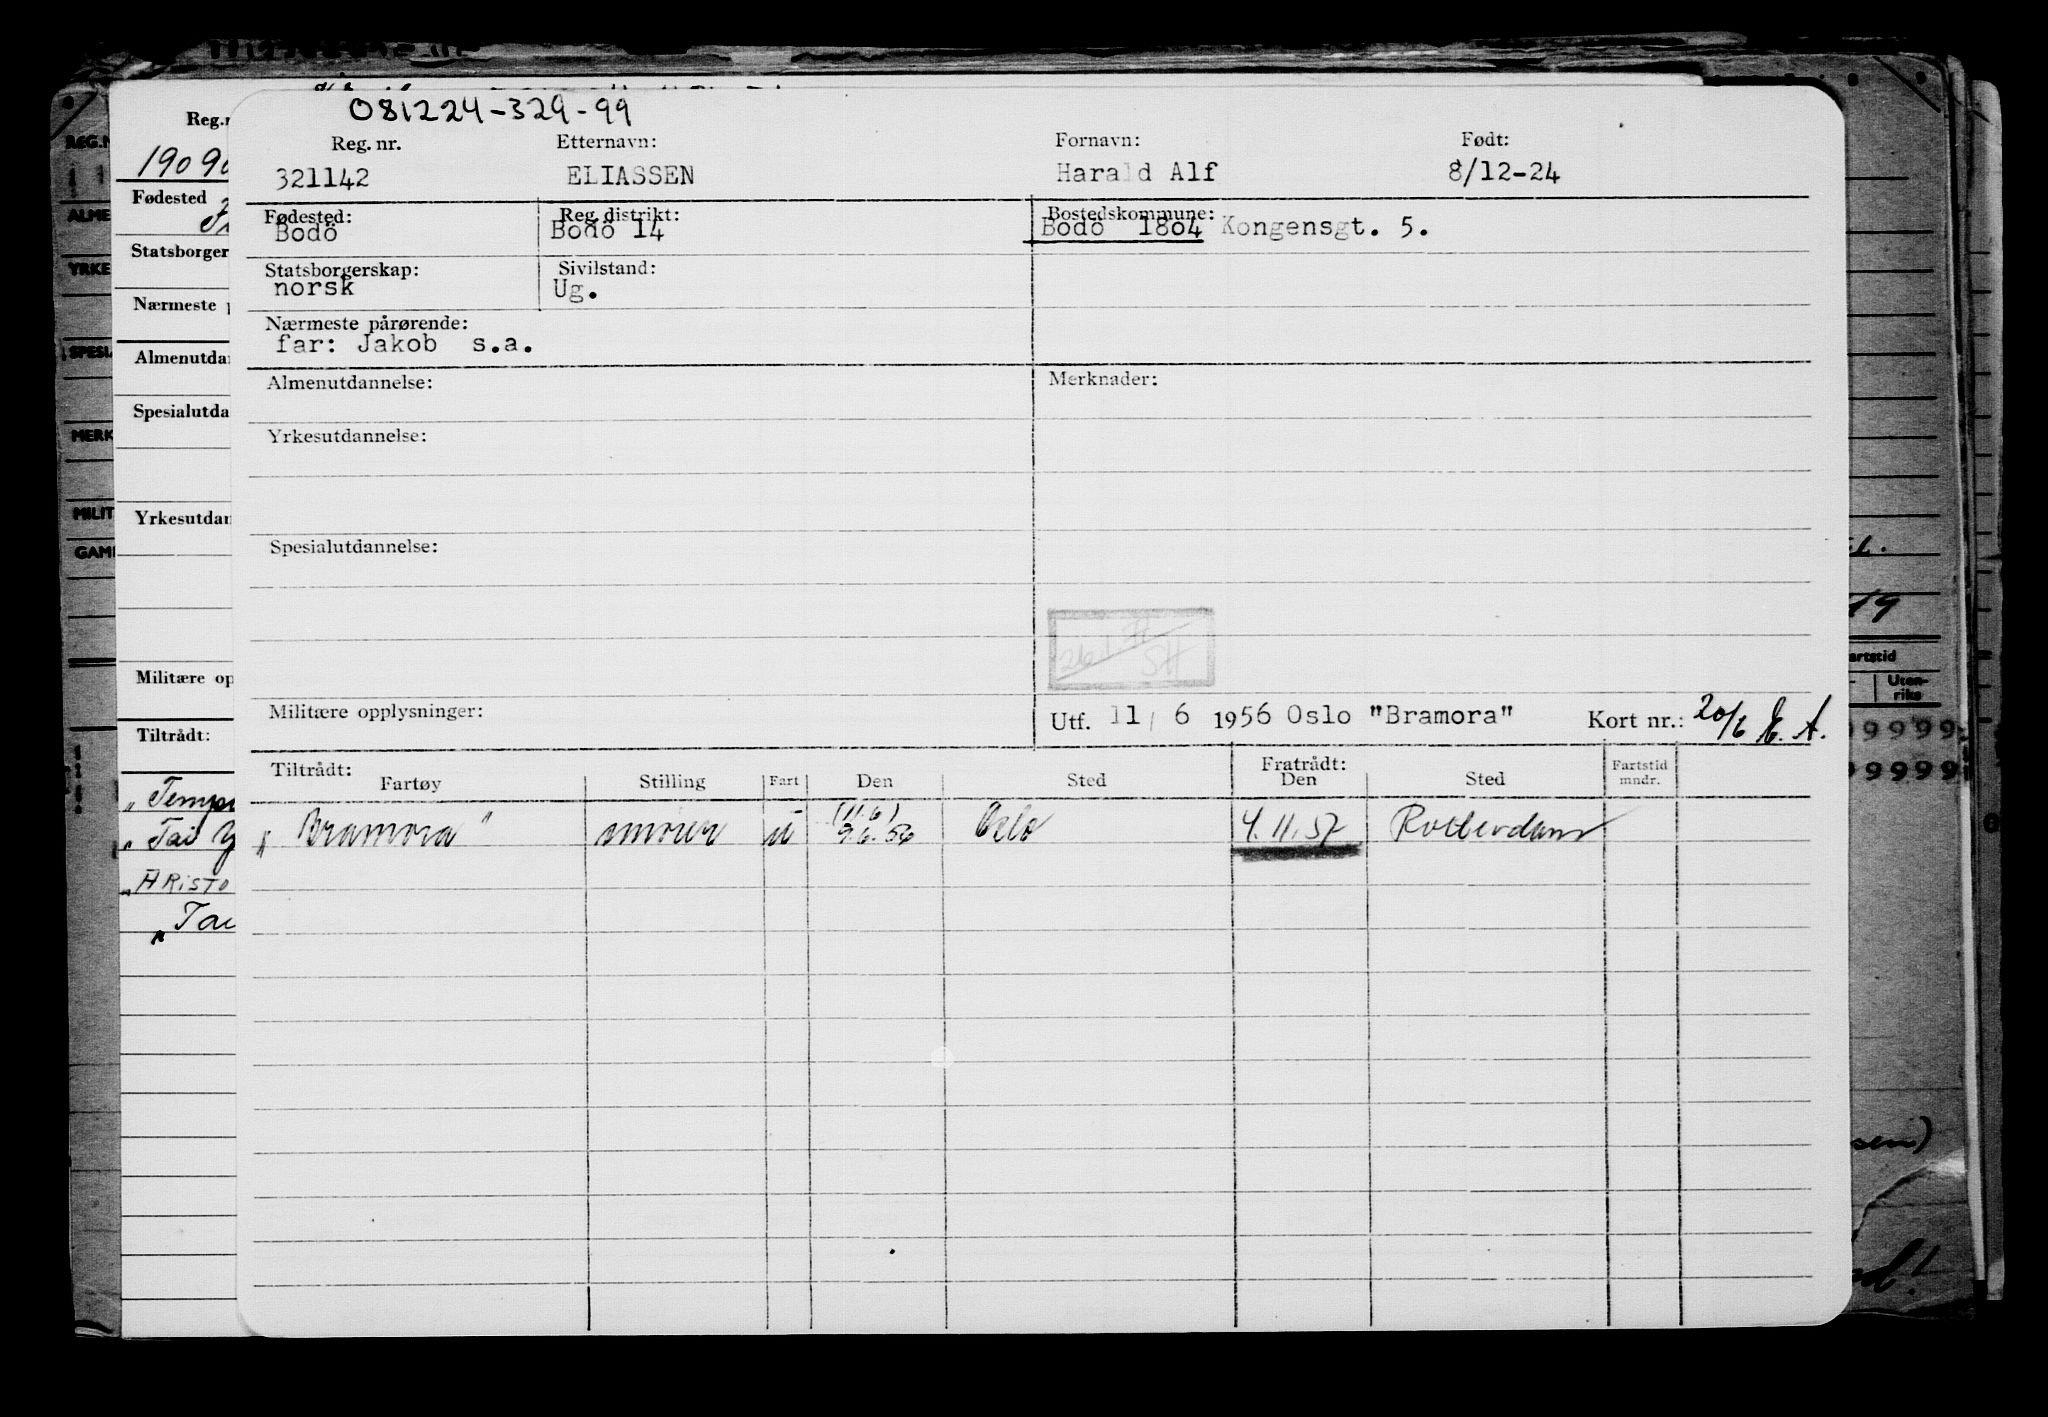 081224-329-99
Reg. nr. Etternavn: Fornavn: Født:
321142 ELIASSEN Harald Alf 8/12-24
Fødested: Reg. distrikt: Bostedskommune:
Bodö Bodö 14 Bodö 1804 Kongensgt. 5.
Statsborgerskap: Sivilstand:
norsk Ug.
Nærmeste pårørende:
far: Jakob s.a.
Almenutdannelse: Merknader:
Yrkesutdannelse:
Spesialutdannelse:
Militære opplysninger: Utf. 11/6 1956 Oslo "Bramora" Kort nr.: 20/6 E. A.
Tiltrådt: Fratrådt: Fartstid
Fartøy Stilling Fart Den Sted Den Sted mndr.
(11.6)
„Bramora" smører u 9.6.56 Oslo 4.11.57 Rotterdam
Reg.n
19090
Fødested
Statsborger
Nærmeste p
Almenutdan
Spesialutda
Yrkesutdan
Militære op
Tiltrådt:
„Temp
„Tai Y
„ARISTO
„Tai
REG.N
ALME
YRKE
SPESIA
MERK
MILIT
GAME
19
artstid
Uten-
riks
99999
99999
sen)